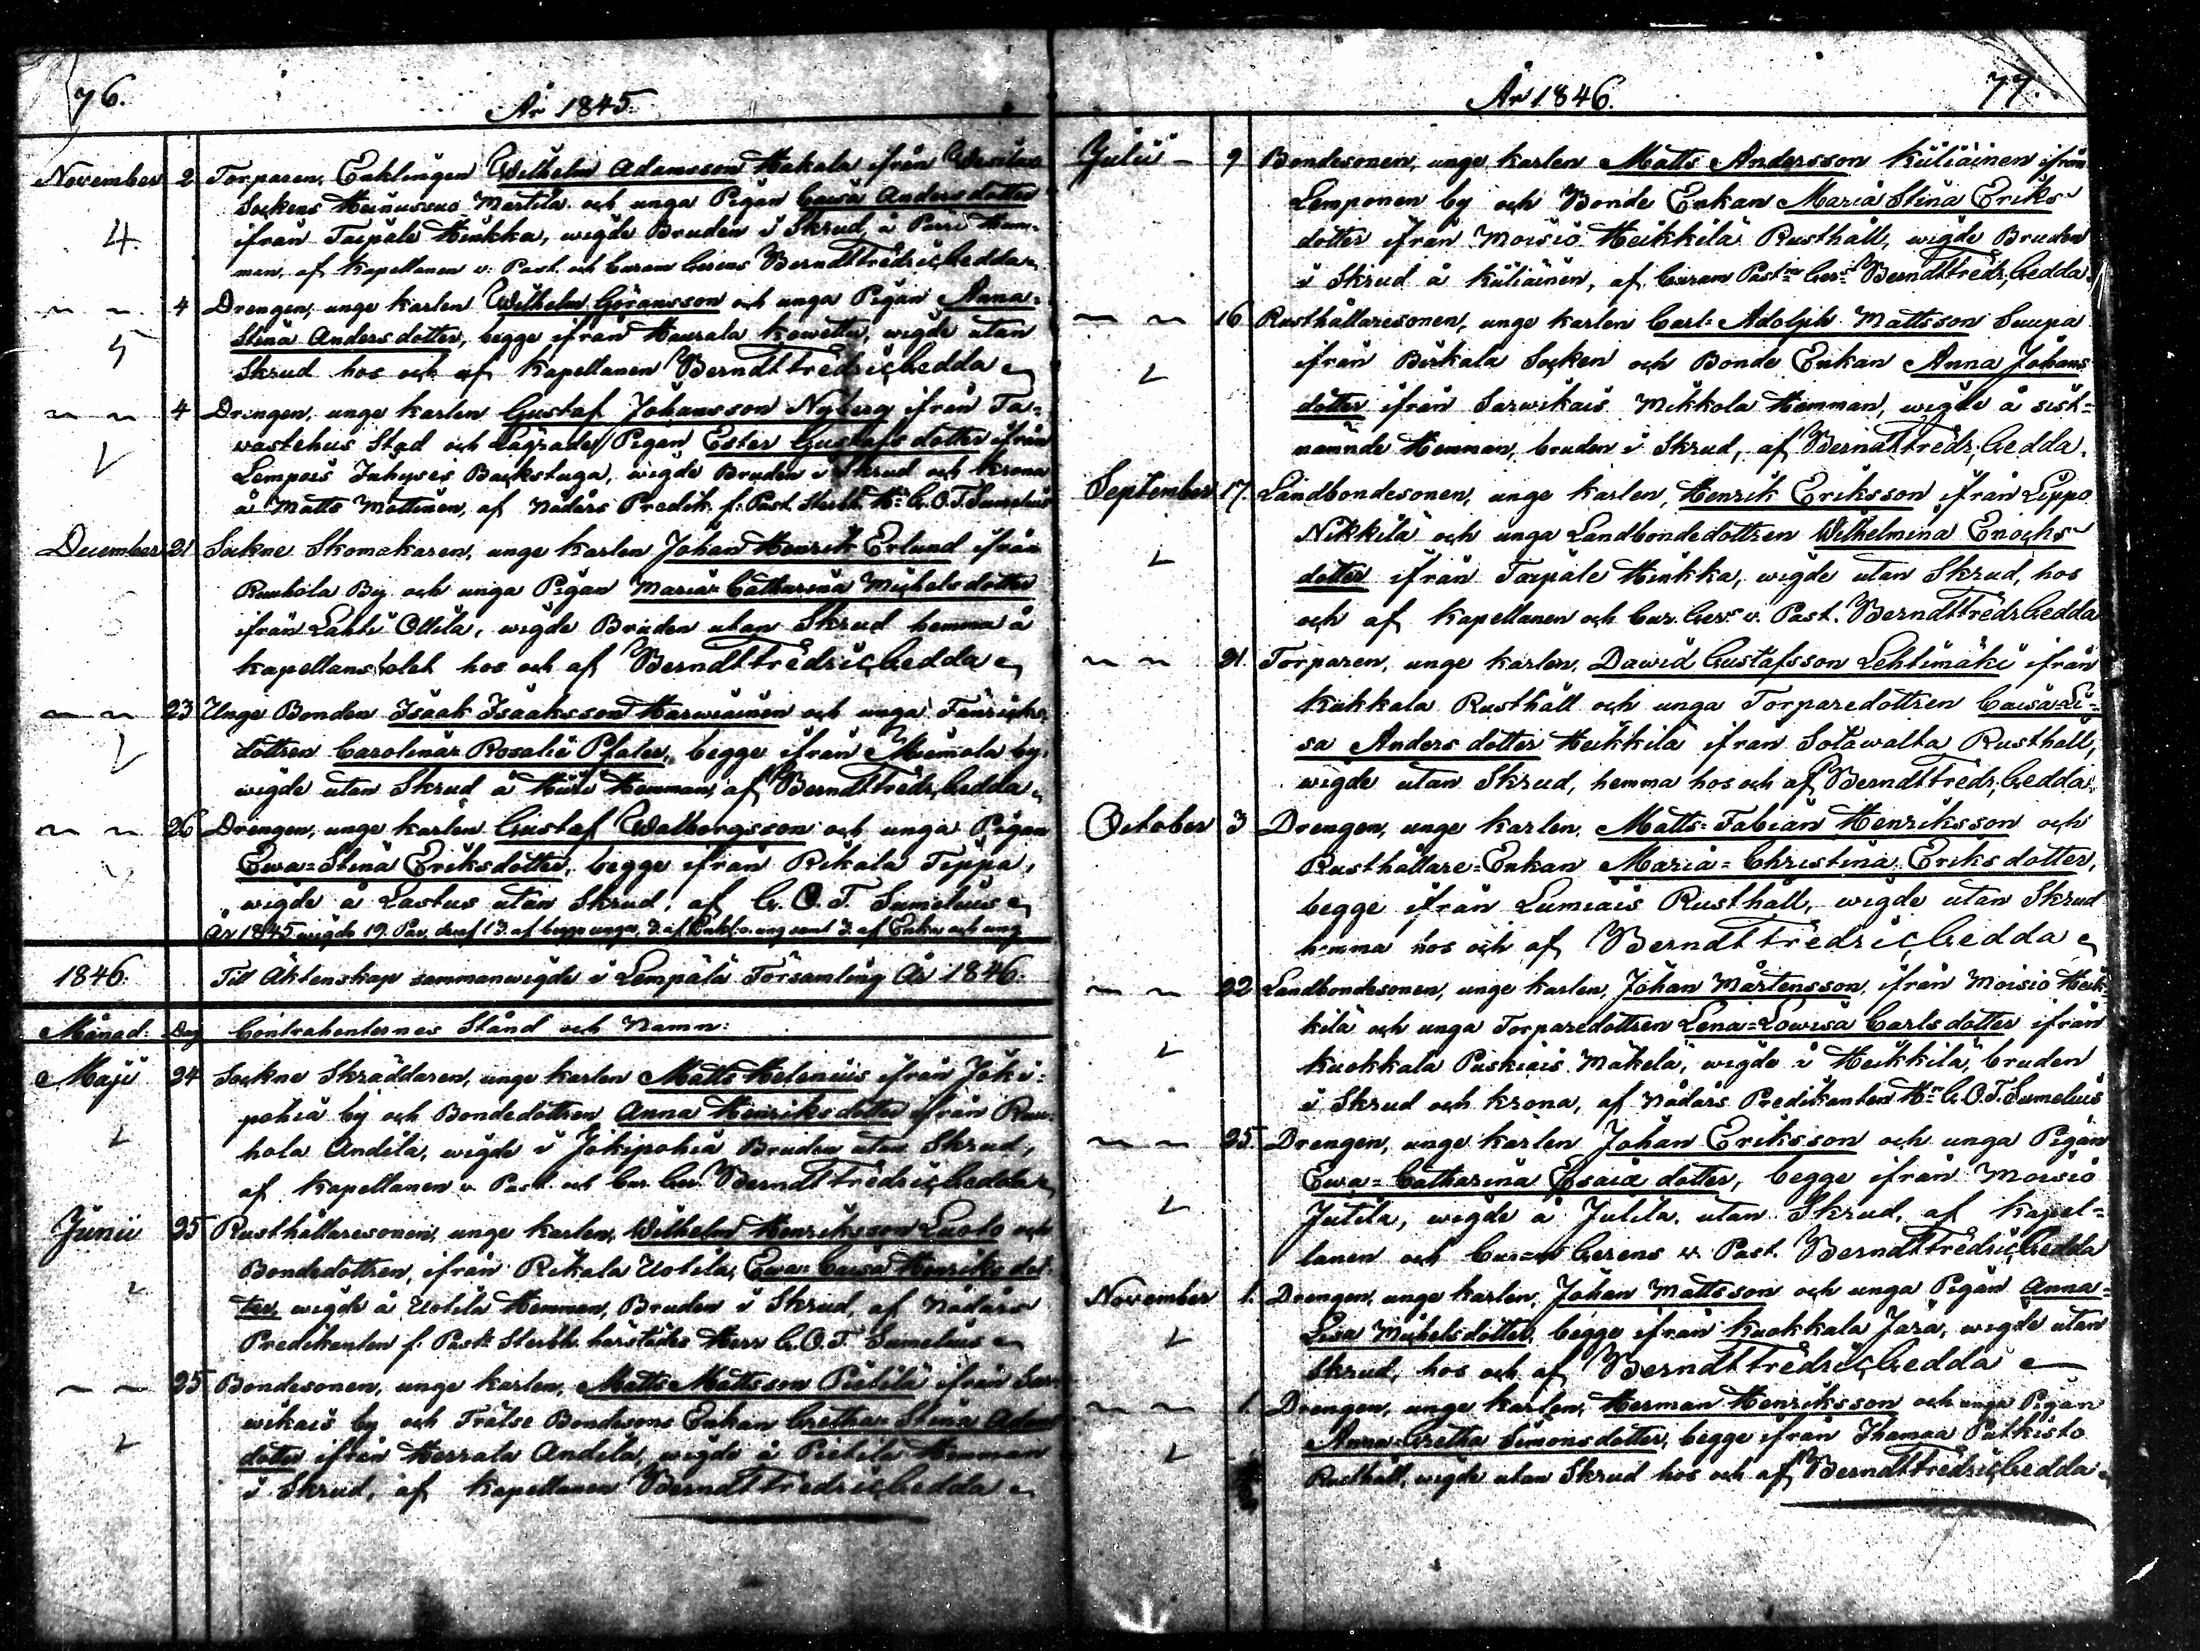 76.
År 1845.
November 2 Torparen, Enklingen Wilhelm Adamsson Hakala ifrån Wesilax
Sockens Heinusuo Märtilä och unga Pigan Caisa Andersdotter
4. ifrån Taipale Hinkka, wigde Bruden i Skrud, å Purri Hem-
man, af Kapellanen v. Past. och Curam Gerens Berndt Fredric Gedda
4 Drengen, unge karlen Wilhelm Göransson och unga Pigan Anna-
5 Stina Andersdotter, begge ifrån Haurala Kowetta, wigde utan
Skrud hos och af Kapellanen Berndt Fredric Gedda
4 Drengen, unge karlen Gustaf Johansson Nyberg ifrån Ta-
wastehus Stad och Lägrade Pigan Ester Gustafsdotter ifrån
Lempois Backstuga, wigde Bruden i Skrud och Krona
å Matts Mattinen, af Nådårs Predik. f. Past. Sterbh. Hr G. O. T. Sumelius
December 21 Sockne Skomakaren, unge karlen Johan Henrik Erlund ifrån
6 Rauhola By och unga Pigan Maria Catharina Michelsdotter
ifrån Lahti Ollila, wigde Bruden utan Skrud hemma å
kapellansbolet hos och af Berndt Fredric Gedda
23 Unge Bonden Isaak Isaaksson Harwiainen och unga Fänricks-
dottren Carolina Rosalie Pfaler, begge ifrån Miemola by,
wigde utan Skrud å Hemman, af Berndt Fredr. Gedda
26 Drengen, unge karlen Gustaf Walborgsson och unga Pigan
Ewa-Stina Eriksdotter, begge ifrån Rikala Teppa,
wigde å Lastus utan Skrud, af G. O. T. Sumelius
År 1845 wigde 19. Par, deraf 13. af begge unga, 3. af Enkl. o. ung samt 3. af Enka och ung
1846. Till Äktenskap sammanwigde i Lempälä Församling År 1846.
Månad. Dag Contrahenternes Stånd och Namn:
Maji 24 Sockne Skräddaren, unge karlen Matts Helenius ifrån Joki-
pohia by och Bondedottren Anna Henriksdotter ifrån Rau-
hola Andila, wigde i Jokipohia Bruden utan Skrud,
af Kapellanen v. Past. och Cur. Ger. Berndt Fredric Gedda
Junii 25 Rusthållaresonen, unge karlen, Wilhelm Henriksson Luoto och
Bondedottren, ifrån Rikala Uotila, Ewa-Caisa Henriksdot-
ter, wigde å Uotila Hemman, Bruden i Skrud, af Nådårs
Predikanten f. Past. Sterbh. härstädes Herr G. O. T. Sumelius
25 Bondesonen, unge karlen, Matts Mattsson Pietilä ifrån Sar-
wikais by och Frälse Bondesons Enkan Gretha-Stina Adams
dotter ifrån Herrala Andila, wigde å Pietilä Hemman
i Skrud, af Kapellanen Berndt Fredric Gedda
År 1846. 77.
Julii 9 Bondesonen, unge karlen Matts Andersson Kuliainen ifrån
Lemponen by och Bonde Enkan Maria Stina Eriks-
dotter ifrån Moisio Heikkilä Rusthåll, wigde Bruden
i Skrud å Kuliainen, af Curam Past. Ger. Berndt Fredr. Gedda.
16 Rusthållaresonen, unge karlen Carl-Adolph Mattsson Suupa
ifrån Birkala Socken och Bonde Enkan Anna Johans
dotter ifrån Sarwikais Mikkola Hemman, wigde å sist-
nämnde Hemman, bruden i Skrud, af Berndt Fredr. Gedda.
September 17. Landbondesonen, unge karlen, Henrik Eriksson ifrån Lippo
Nikkilä och unga Landbondedottren Wilhelmina Enochs-
dotter ifrån Taipale Hinkka, wigde utan Skrud, hos
och af Kapellanen och Cur. Ger. v. Past. Berndt Fredr. Gedda
21. Torparen, unge karlen, Dawid Gustafsson Lehtimäki ifrån
Kukkala Rusthåll och unga Torparedottren Caisa-Li-
sa Andersdotter Heikkilä ifrån Sotawalta Rusthåll,
wigde utan Skrud, hemma hos och af Berndt Fredr. Gedda.
October 3 Drengen, unge karlen, Matts-Fabian Henriksson och
Rusthållare-Enkan Maria-Christina Eriksdotter,
begge ifrån Lumiais Rusthåll, wigde utan Skrud
hemma hos och af Berndt Fredric Gedda
22 Landbondesonen, unge karlen, Johan Mårtensson, ifrån Moisio Heik-
kilä och unga Torparedottren Lena-Lowisa Carlsdotter ifrån
Kuokkala Puskiais Mäkelä, wigde å Heikkilä, bruden
i Skrud och krona, af Nådårs Predikanten Hr G. O. T. Sumelius
25. Drengen, unge karlen Johan Eriksson och unga Pigan
Ewa-Catharina Esaiædotter, begge ifrån Moisio
Jutila, wigde å Jutila, utan Skrud, af Kapel-
lanen och Cur-m Gerens v. Past. Berndt Fredric Gedda
November 1. Drengen, unge karlen, Johan Mattsson och unga Pigan Anna-
Lisa Michelsdotter, begge ifrån Kuokkala Jara, wigde utan
Skrud, hos och af Berndt Fredric Gedda
1. Drengen, unge karlen, Herman Henriksson och unga Pigan
Anna-Gretha Simonsdotter, begge ifrån Ihamaa Pätkisto
Rusthåll, wigde utan Skrud hos och af Berndt Fredric Gedda